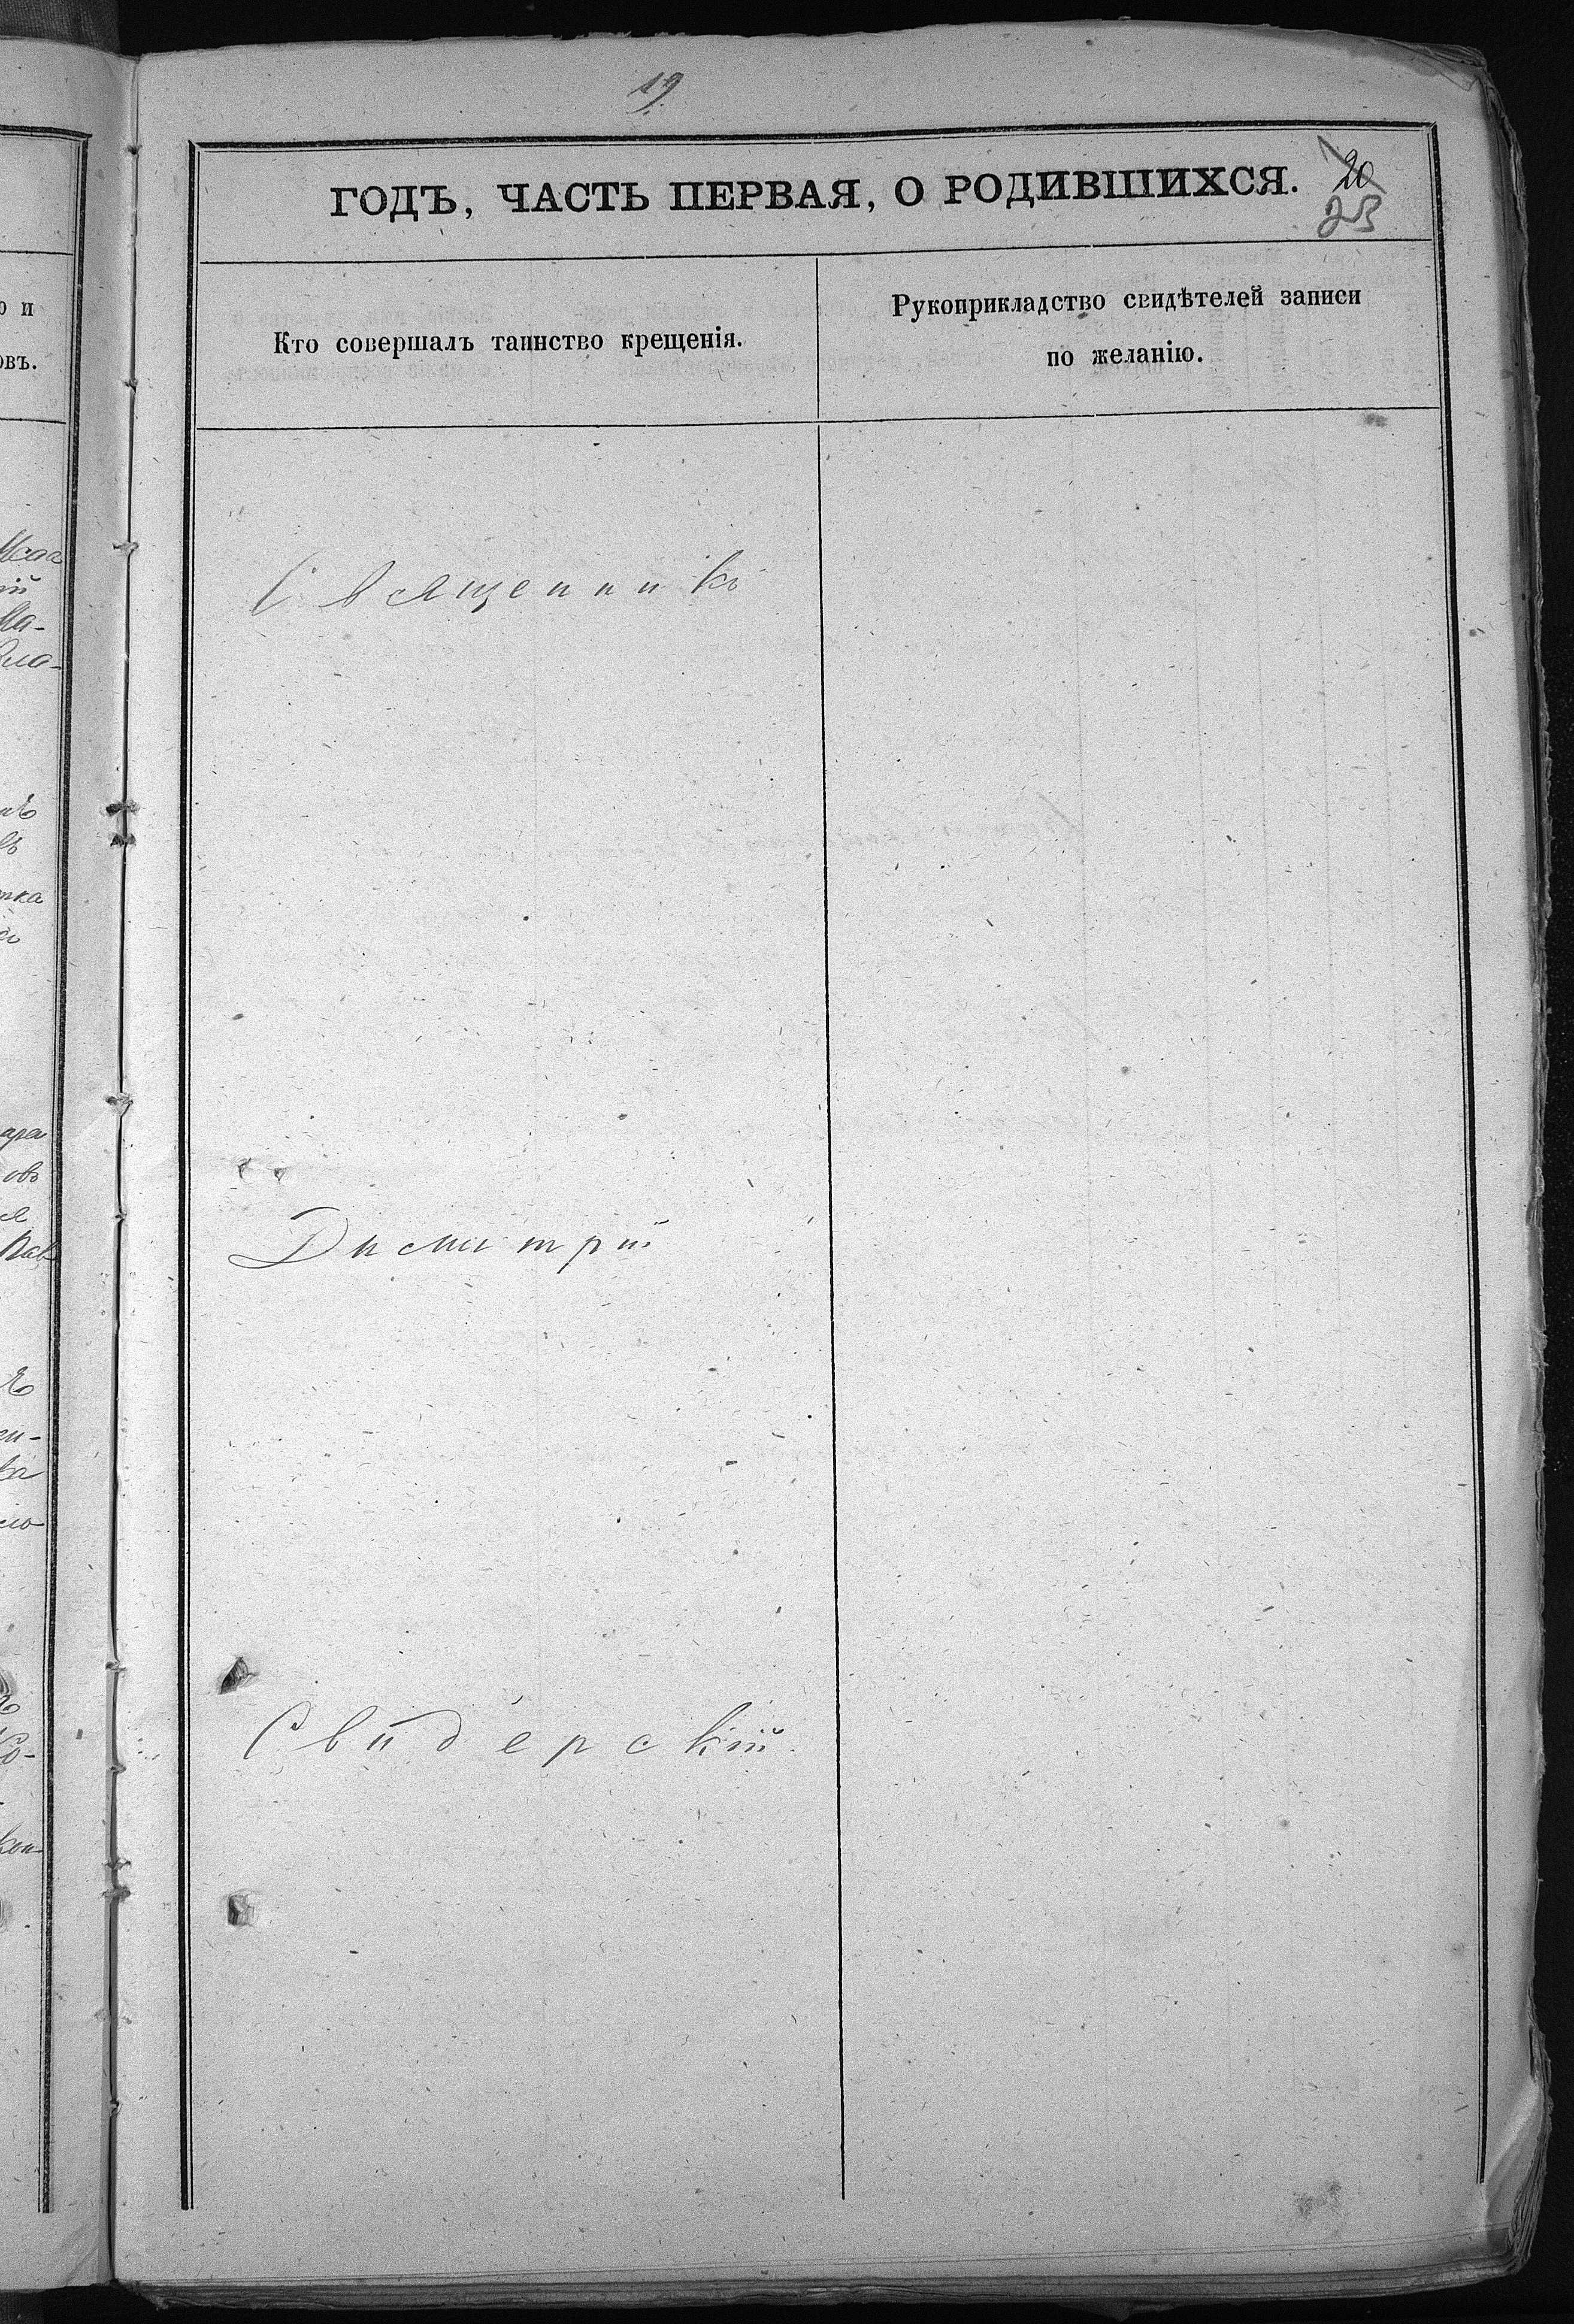 19.
ГОДЪ, ЧАСТЬ ПЕРВАЯ, О РОДИВШИХСЯ.
20
23
Кто совершалъ таинство крещенія.
Рукоприкладство свидѣтелей записи
по желанію.
Священникъ
Димитрій
Свидерскій.